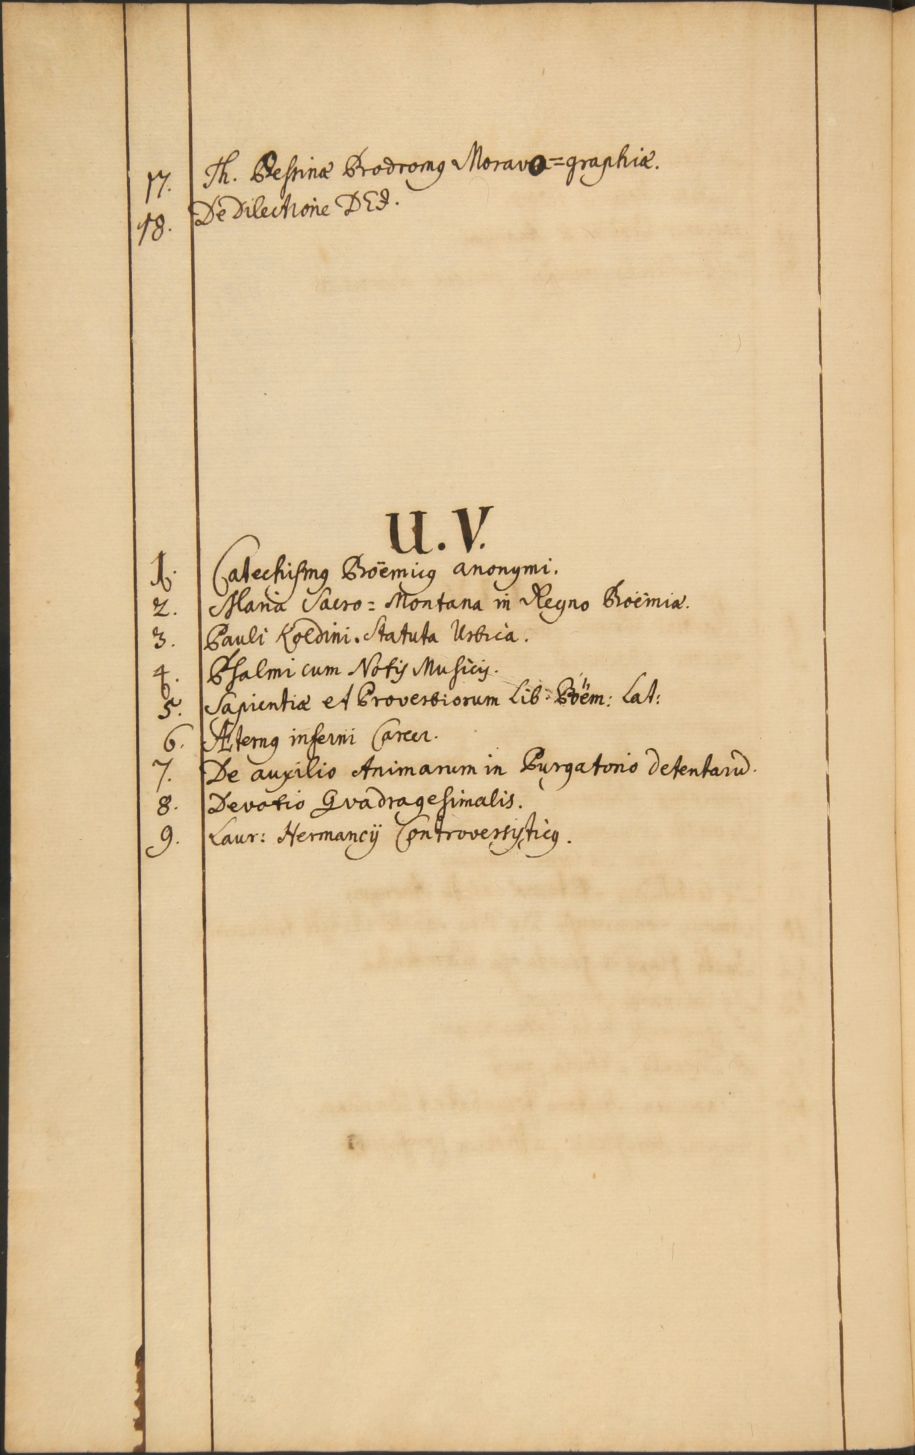 17. Th. Pessinæ Prodromꝰ Moravo=graphiæ.
18. De Dilectione DEI.
U. V.
1. Catechismꝰ Böemicꝰ anonymi.
2. Maria Sacro=Montana in Regno Boëmiæ.
3. Pauli Koldini. Statuta Urbica.
4. Psalmi cum Notis Musicis.
5. Sapientiæ et Proverbiorum Lib: Böëm: Lat:
6. Æternꝰ inferni Carcer.
7. De auxilio Animarum in Purgatorio detentarū.
8. Devotio Qvadragesimalis.
9. Laur: Hermancij Controversisticꝰ.